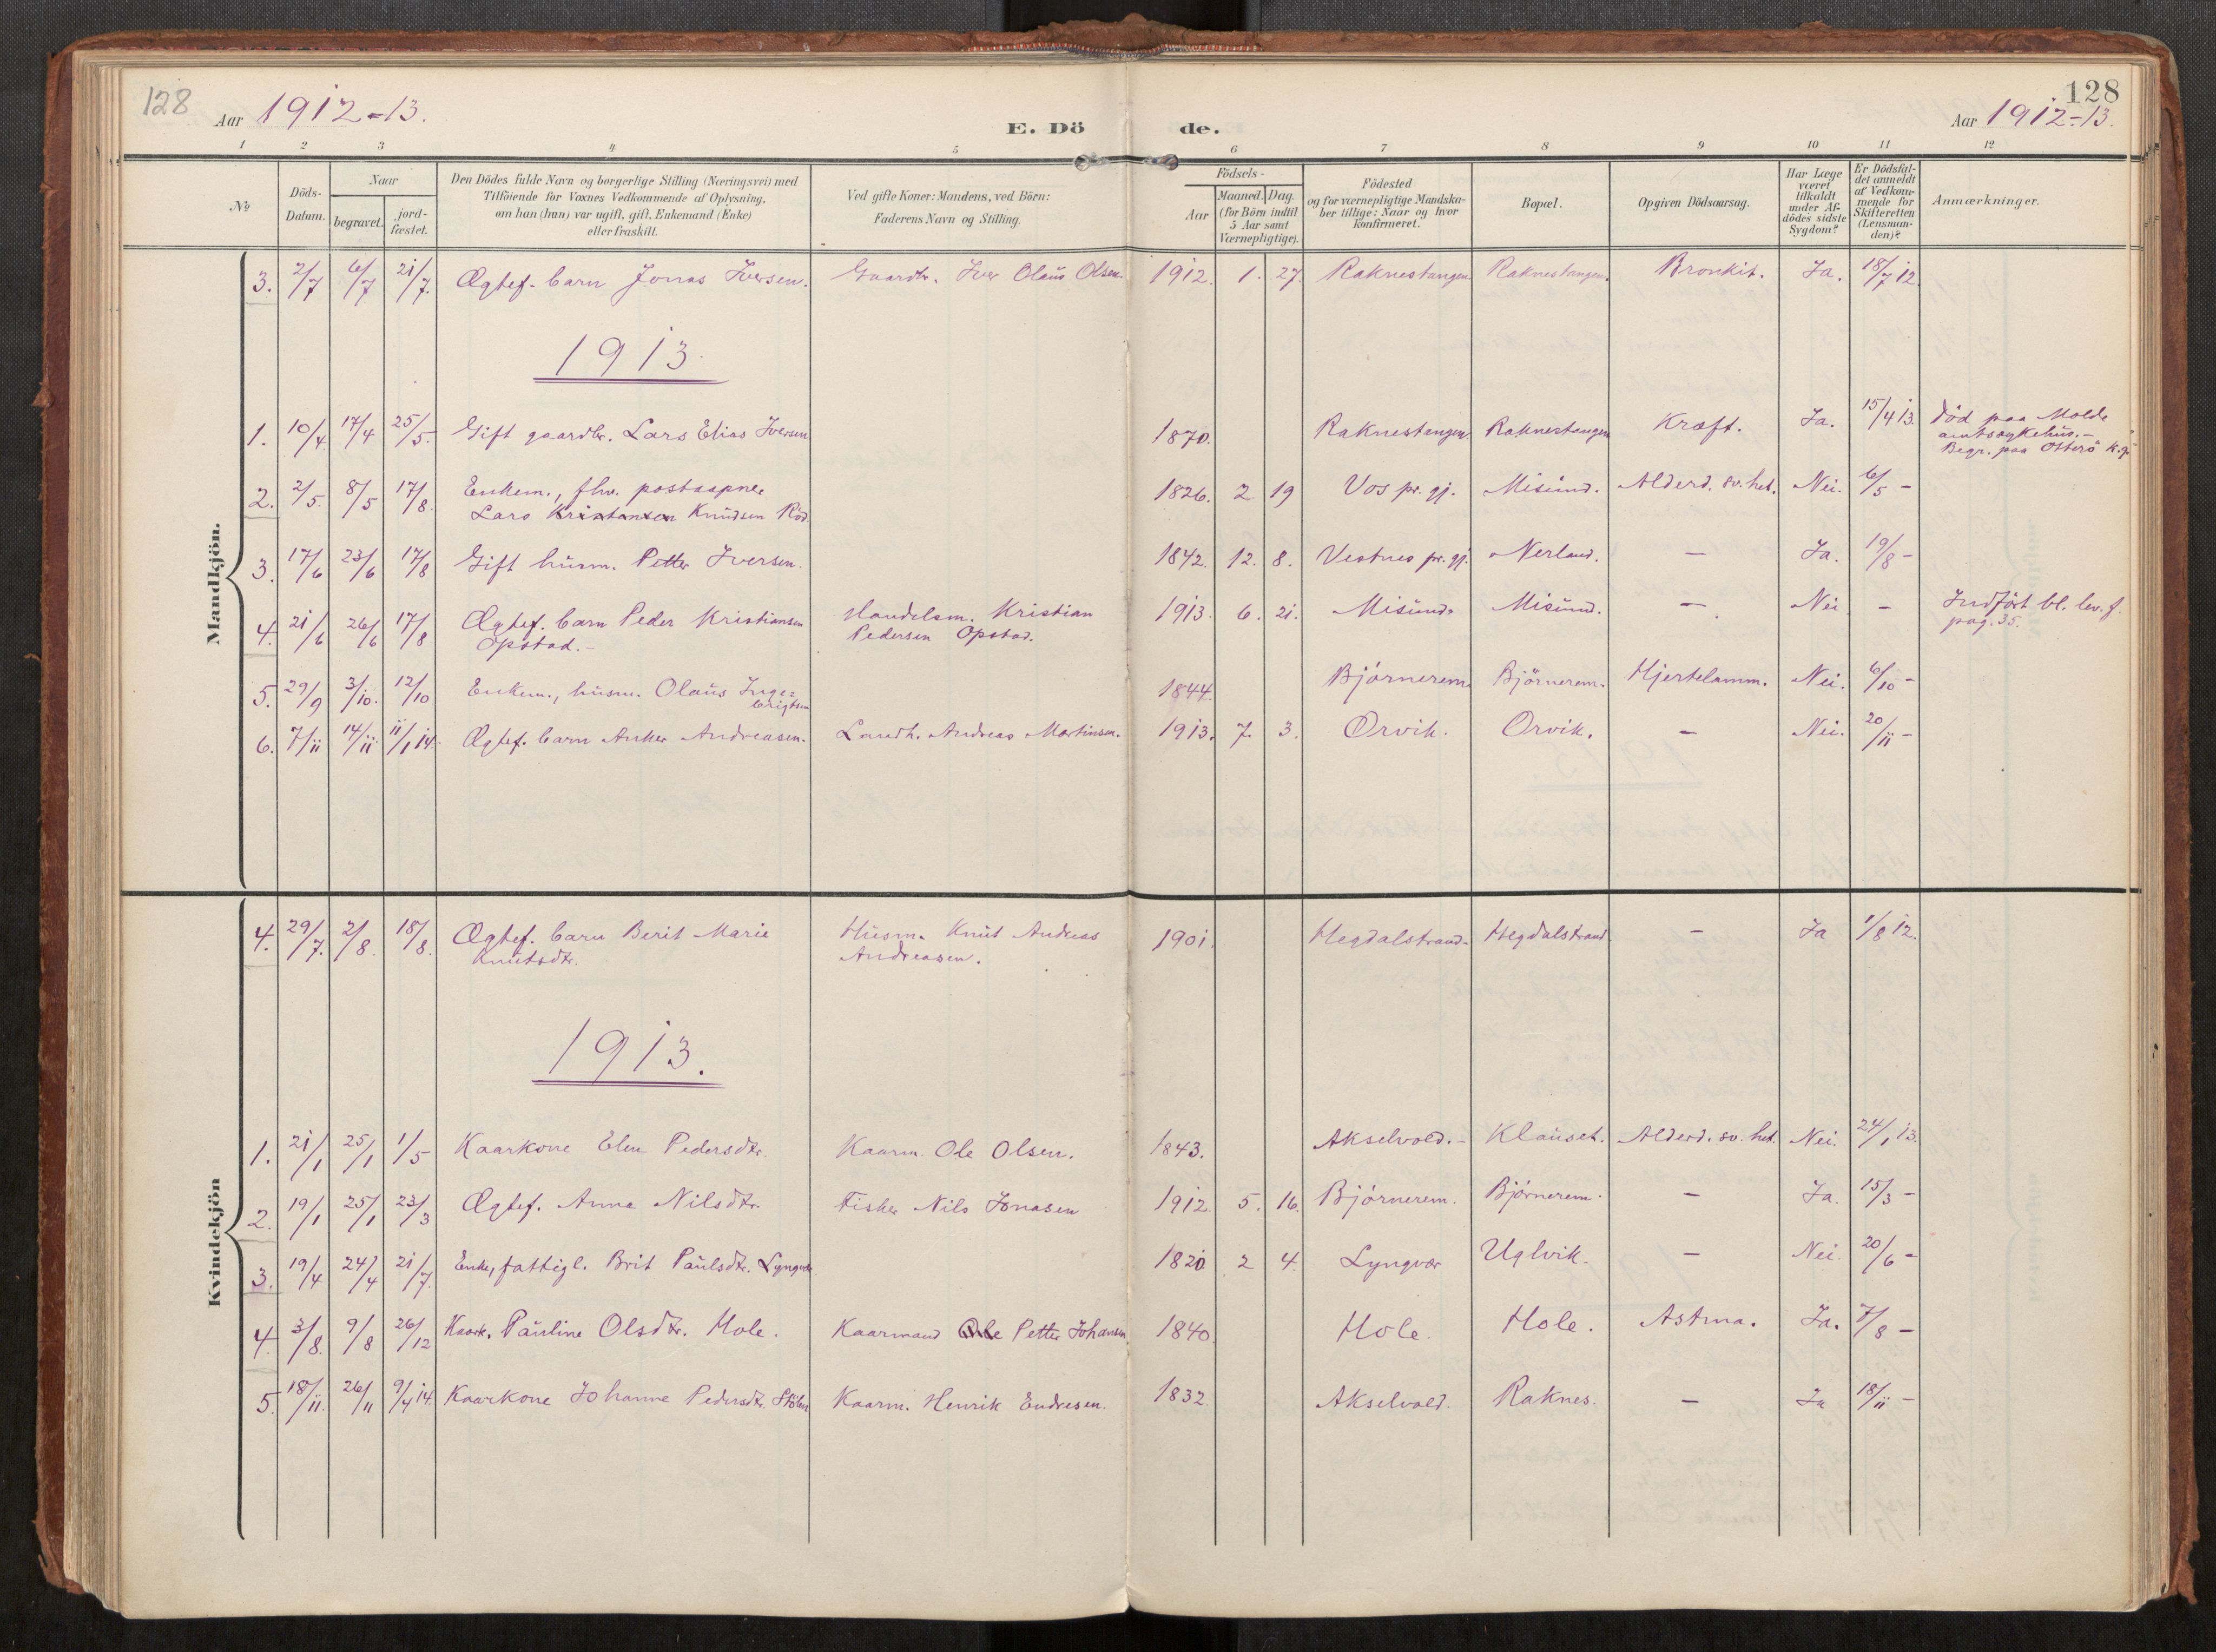 128
Aar 1912-13.
E. Döde.
128
Aar 1912-13.
1 2 3 4 5 6 7 8 9 10 11 12
No
Döds-Datum.
Naar
begravet.
jord-fæstet.
Den Dödes fulde Navn og borgerlige Stilling (Næringsvei) med
Tilföiende for Voxnes Vedkommende af Oplysning,
om han (hun) var ugift, gift, Enkemand (Enke)
eller fraskilt.
Ved gifte Koner: Mandens, ved Börn:
Faderens Navn og Stilling.
Födsels-
Aar
Maaned. Dag.
(for Börn indtil
5 Aar samt
Værnepligtige).
Födested
og for værnepligtige Mandska-
ber tillige: Naar og hvor
konfirmeret.
Bopæl.
Opgiven Dödsaarsag.
Har Læge
været
tilkaldt
under Af-
dödes sidste
Sygdom?
Er Dödsfal-
det anmeldt
af Vedkom-
mende for
Skifteretten
(Lensman-
den)?
Anmærkninger.
Mandkjön.
3. 2/7 6/7 21/7. Ægtef. barn Jonas Iversen. Gaardbr. Iver Olaus Olsen. 1912. 1. 27. Raknestangen Raknestangen. Bronkit. Ja. 18/7 12.
1913.
1. 10/4 17/4 25/5. Gift gaardbr. Lars Elias Iversen 1870. Raknestangen. Raknestangen Kræft. Ja. 15/4 13. Död paa Molde
amtssykehus. -
Begr. paa Otterö k.g.
2. 2/5. 8/5 17/8. Enkem., fhv. postaapner
Lars Kristansen Knudsen Röd. 1826. 2 19 Vos pr.gj. Misund. Alderd. sv.het. Nei. 6/5 -
3. 17/6 23/6 17/8 Gift husm. Petter Iversen. 1842. 12. 8. Vestnes pr.gj. Nerland. - Ja. 19/8 -
4. 21/6 26/6 17/8 Ægtef. barn Peder Kristiansen
Opstad. - Handelsm. Kristian
Pedersen Opstad. 1913. 6. 21. Misund. Misund. - Nei - Indfört bl. lev. f.
pag. 35.
5. 29/9 3/10. 12/10 Enkem., husm. Olaus Inge=
brigtsen 1844. Björnerem. Björnerem. Hjertelamm. Nei. 6/10 -
6. 7/11 14/11 11/1 14. Ægtef. barn Anker Andreasen. Landh. Andreas Martinsen. 1913. 7. 3. Orvik. Orvik. - Nei. 20/11 -
Kvindekjön
4. 29/7. 2/8. 18/8. Ægtef. barn Berit Marie
Knutsdtr. Husm. Knut Andreas
Andreasen. 1901. Hegdalstrand. Hegdalstrand. - Ja 1/8 12.
1913.
1. 21/1 25/1 1/5 Kaarkone Elen Pedersdtr. Kaarm. Ole Olsen. 1843. Akselvold. - Klauset. Alderd. sv. het. Nei. 24/1 13.
2. 19/1 25/1 23/3 Ægtef. Anna Nilsdtr. Fisker Nils Jonasen 1912. 5. 16. Björnerem. Björnerem. - Ja. 15/3 -
3. 19/4 24/4 21/7. Enke, fattigl. Brit Paulsdtr. Lyngvær 1820 2 4. Lyngvær Uglvik. - Nei. 20/6 -
4. 3/8. 9/8 26/12 Kaark. Pauline Olsdtr. Hole. Kaarmand Ole Petter Johansen. 1840. Hole. Hole. Astma. Ja. 7/8 -
5. 18/11. 26/11 9/4 14. Kaarkone Johanne Pedersdtr. Kaarm. Henrik Endresen. 1832. Akselvold. Raknes. - Ja 18/11 -